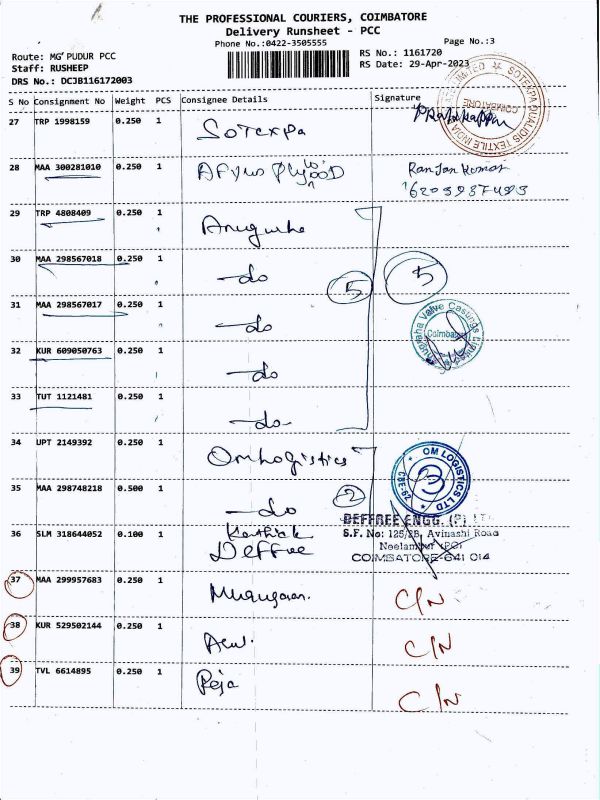 THE PROFESSIONAL COURIERS, COIMBATORE
Delivery Runsheet - PCC
Phone No.:0422-3505555
Page No.:3
Route: MG PUDUR PCC
RS No.: 1161720
Staff: RUSHEEP
RS Date: 29-Apr-2023
DRS No.: DCJB116172003
S No Consignment No Weight PCS Consignee Details Signature
27 TRP 1998159 0.250 1 Sotexpa
SOTEXPA QUALIDIS TEXTILE INDIA LIMITED
COIMBATORE
28 MAA 300281010 0.250 1 Ranjan Kumar
29 TRP 4808409 0.250 1 Anugraha
30 MAA 298567018 0.250 1 -do
5 5
31 MAA 298567017 0.250 1 -do
Anugraha Valve Castings Limited
Coimbatore
32 KUR 609050763 0.250 1 -do
33 TUT 1121481 0.250 1 -do-
34 UPT 2149392 0.250 1 Om Logistics
OM LOGISTICS LTD
CBE-29
3
35 MAA 298748218 0.500 1 -do 2
DEFFREE ENGG. (P) LTD
36 SLM 318644052 0.100 1 Karthick
Deffree
S.F. No: 125/2B, Avinashi Road
Neelambur (PO)
COIMBATORE-641 014
37 MAA 299957683 0.250 1 Murugavan. C/N
38 KUR 529502144 0.250 1 C/N
39 TVL 6614895 0.250 1 Reja C/N